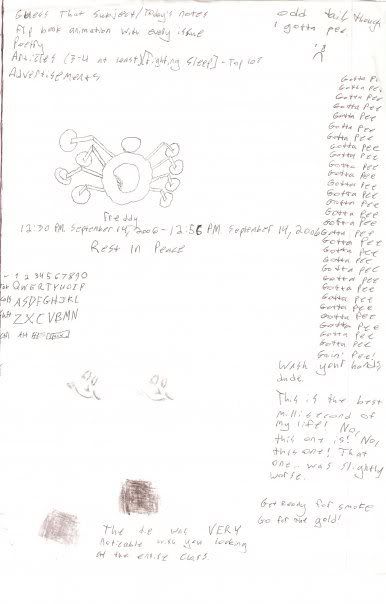 Guess That Subject/Today's notes
Flip book animation with every issue
Poetry
Articles (3-4 at least) [Fighting Sleep] - Top 10s
Advertisements
odd tail though
I gotta pee
Gotta Pe
Gotta Pee
Gotta Pee
Gotta Pee
Gotta Pee
Gotta Pee
Gotta Pee
Gotta Pee
Gotta Pee
Gotta Pee
Gotta Pee
Gotta Pee
Gotta Pee
Gotta Pee
Gotta Pee
Gotta Pee
Gotta Pee
Gotta Pee
Gotta Pee
Gotta Pee
Gotta Pee
Gotta Pee
Gotta Pee
Gotta Pee
Gotta Pee
Gotta Pee
Gotta Pee
Gotta Pee
Gotta Pee
Goin' Pee!
Wash your hands
dude.
This is the best
millisecond of
my life! No,
this one is! No,
this one! That
one was slightly
worse.
Get Ready for smoke
Go for out gold!
Freddy
12:30 PM September 14, 2006 - 12:56 PM September 14, 2006
Rest In Peace
~ 1 2 3 4 5 6 7 8 9 0
QWERTYUOIP
ASDFGHJKL
ZXCVBMN
The tie was VERY
noticable with you looking
at the entire class.